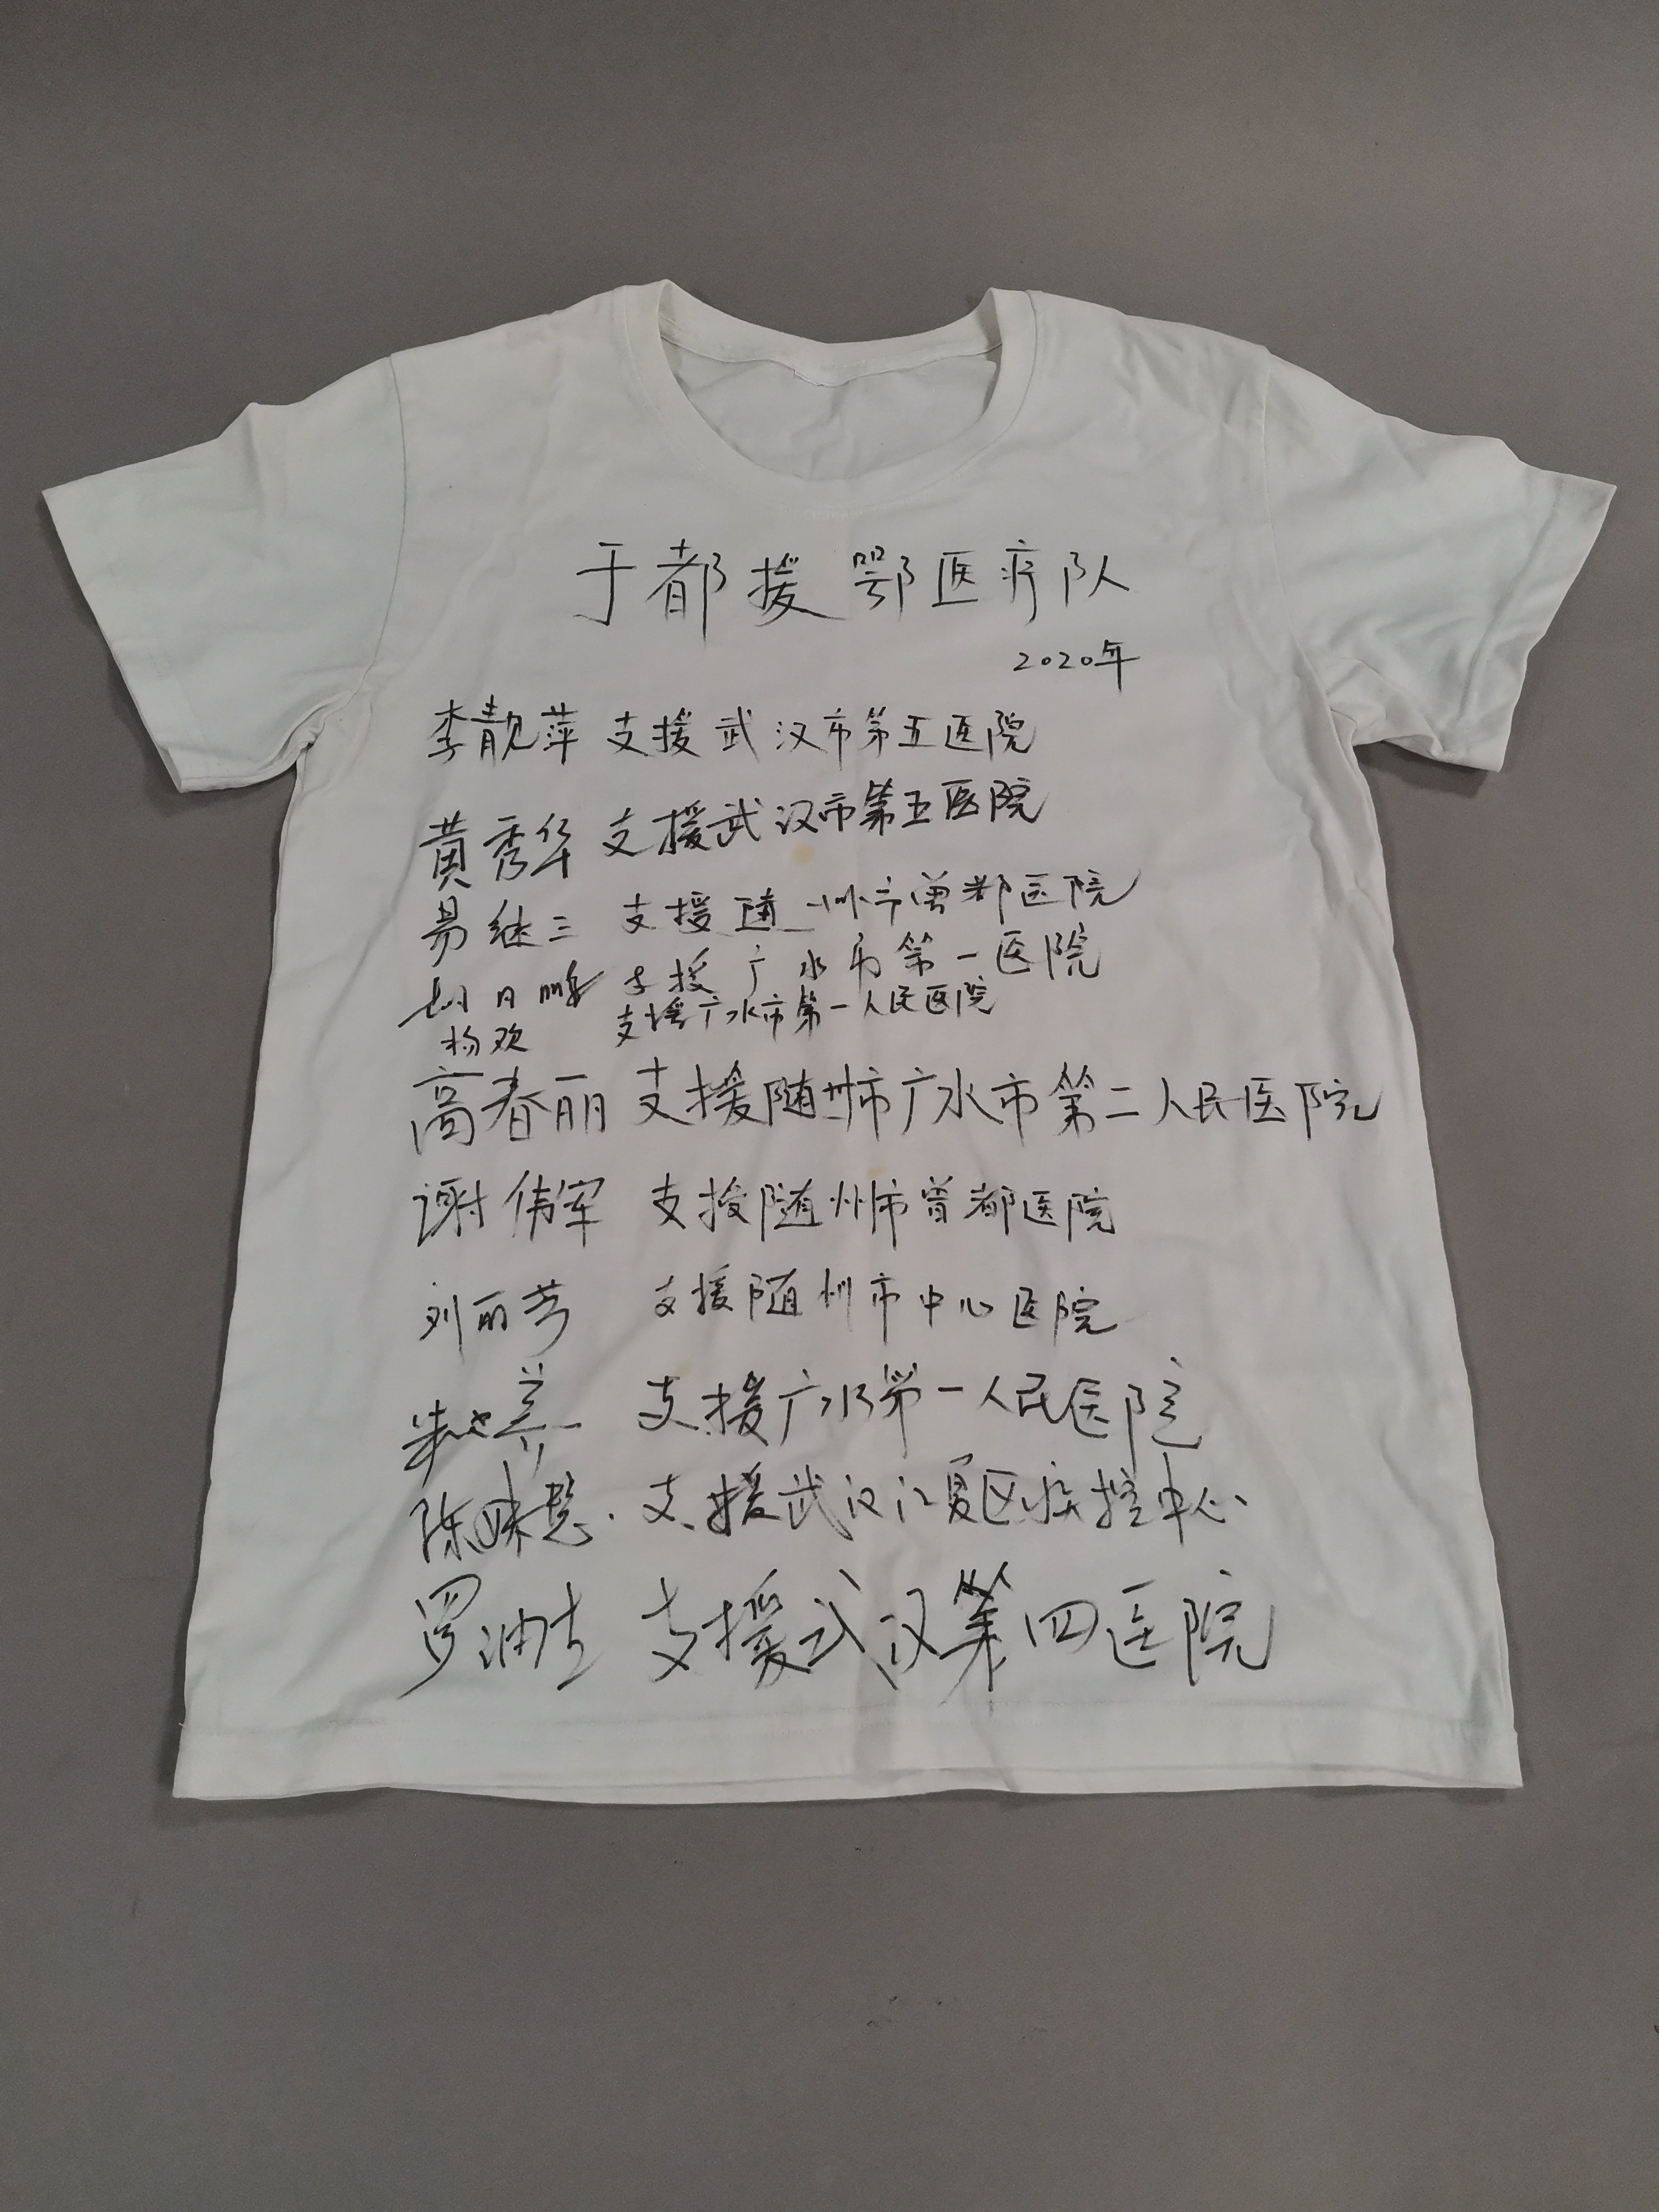 于都援鄂医疗队
2020年
李靓萍 支援武汉市第五医院
黄秀华 支援武汉市第五医院
易继三 支援随州市曾都医院
支援广水市第一医院
杨欢 支援广水市第一人民医院
高春丽 支援随州市广水市第二人民医院
谢伟军 支援随州市曾都医院
刘丽芳 支援随州市中心医院
支援广水第一人民医院
陈 支援武汉江夏区疾控中心
罗油生 支援武汉第四医院